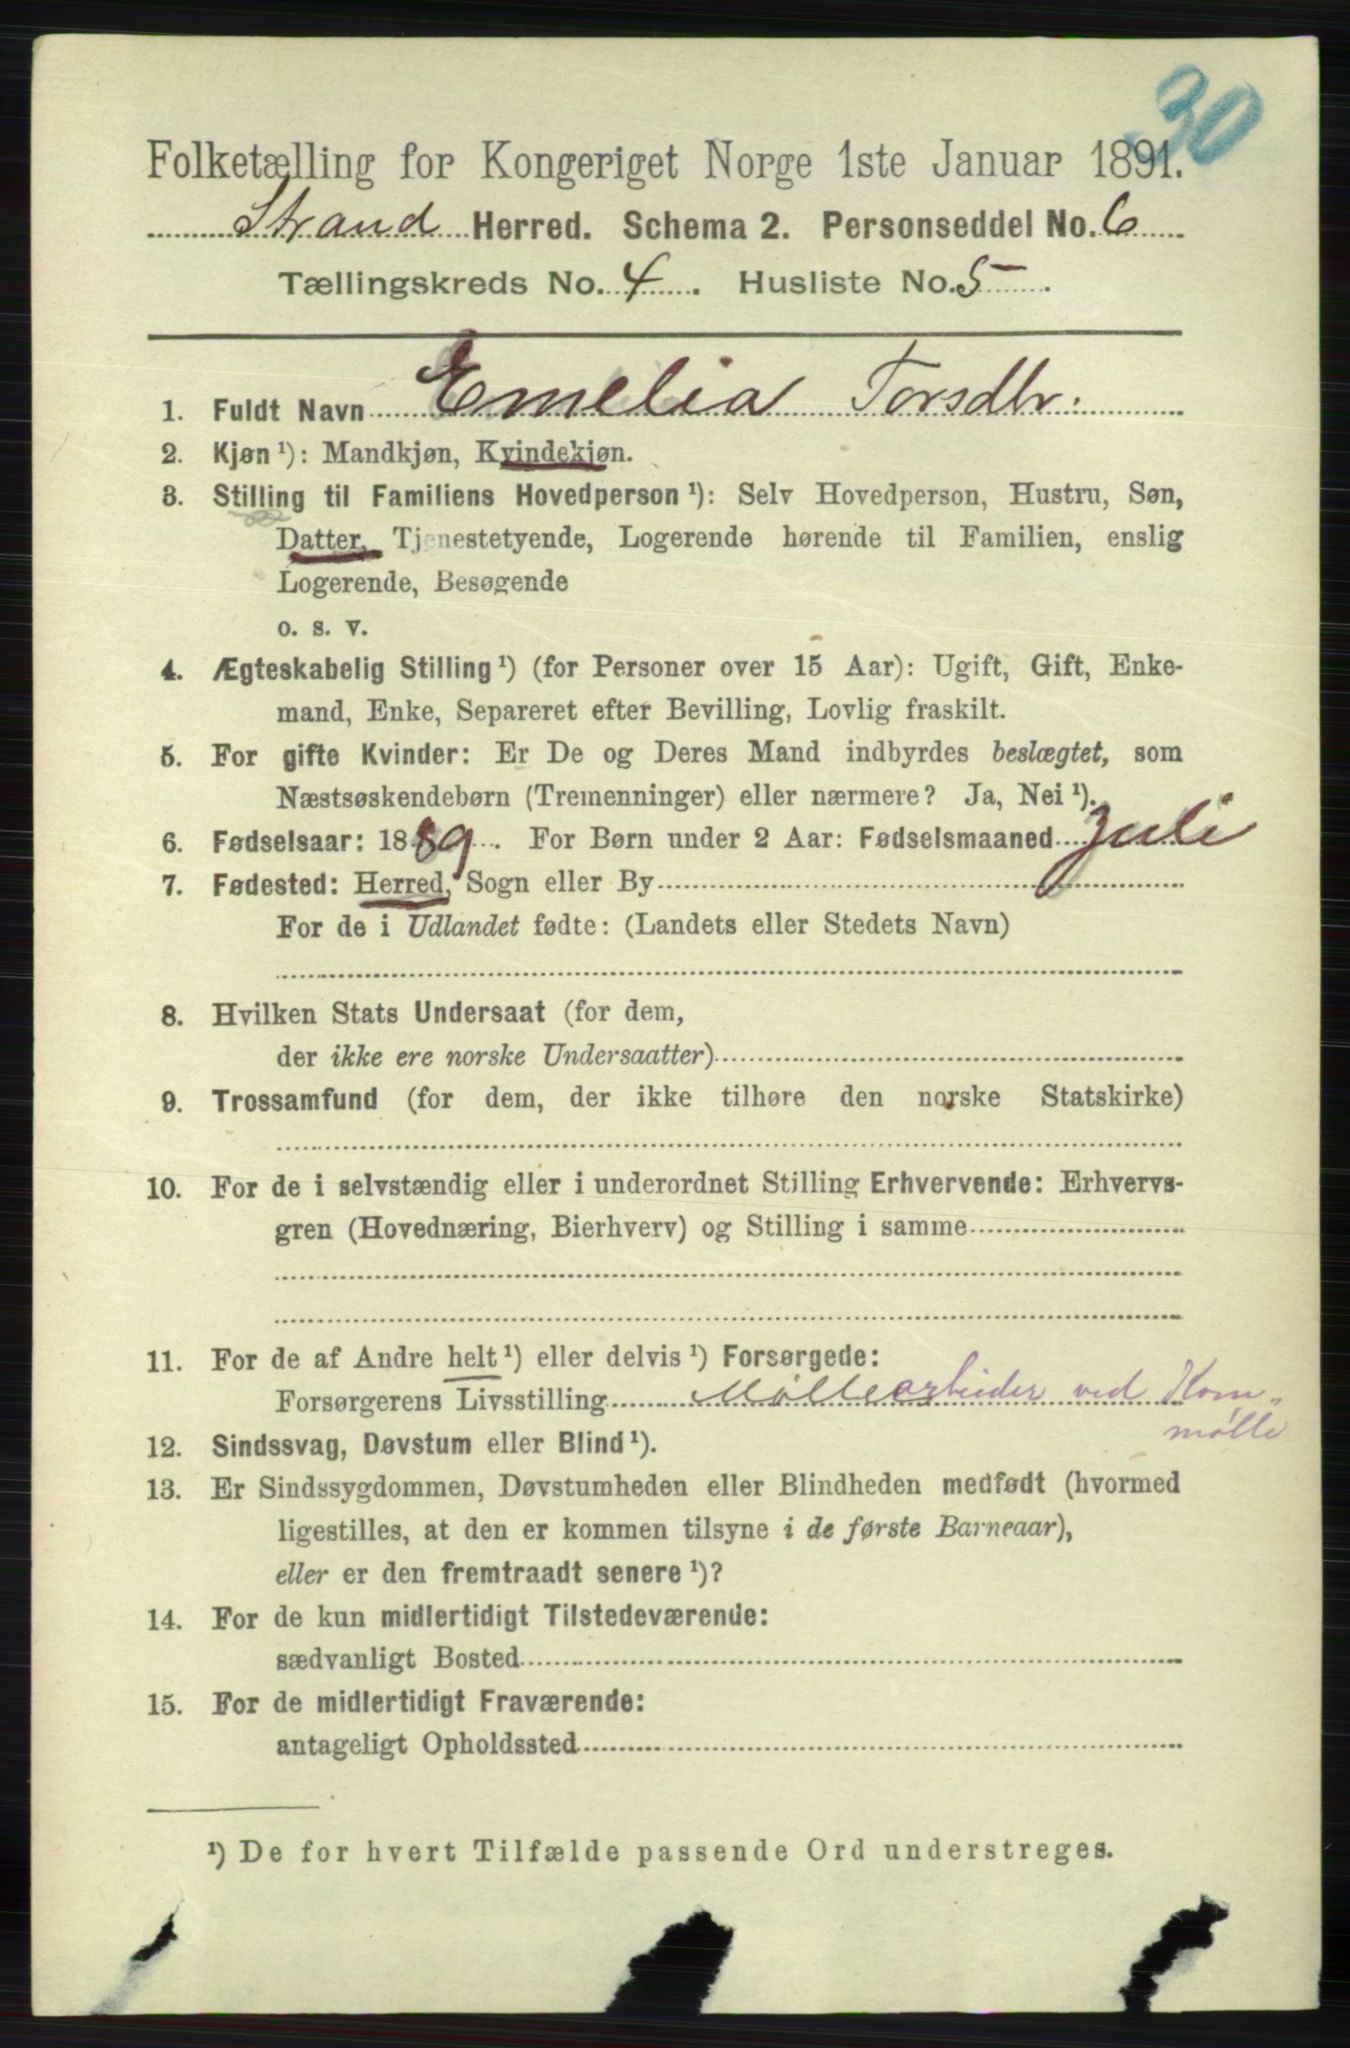 30
Folketælling for Kongeriget Norge 1ste Januar 1891.
Strand Herred. Schema 2. Personseddel No. 6
Tællingskreds No. 4. Husliste No. 5.
1. Fuldt Navn Emelia Torsdtr.
2. Kjøn ¹): Mandkjøn, Kvindekjøn.
3. Stilling til Familiens Hovedperson ¹): Selv Hovedperson, Hustru, Søn,
Datter, Tjenestetyende, Logerende hørende til Familien, enslig
Logerende, Besøgende
o. s. v.
4. Ægteskabelig Stilling ¹) (for Personer over 15 Aar): Ugift, Gift, Enke-
mand, Enke, Separeret efter Bevilling, Lovlig fraskilt.
5. For gifte Kvinder: Er De og Deres Mand indbyrdes beslægtet, som
Næstsøskendebørn (Tremenninger) eller nærmere? Ja, Nei ¹).
6. Fødselsaar: 1889. For Børn under 2 Aar: Fødselsmaaned Juli
7. Fødested: Herred, Sogn eller By
For de i Udlandet fødte: (Landets eller Stedets Navn)
8. Hvilken Stats Undersaat (for dem,
der ikke ere norske Undersaatter)
9. Trossamfund (for dem, der ikke tilhøre den norske Statskirke)
10. For de i selvstændig eller i underordnet Stilling Erhvervende: Erhvervs-
gren (Hovednæring, Bierhverv) og Stilling i samme
11. For de af Andre helt ¹) eller delvis ¹) Forsørgede:
Forsørgerens Livsstilling Møllearbeider ved Korn-
mølle
12. Sindssvag, Døvstum eller Blind ¹).
13. Er Sindssygdommen, Døvstumheden eller Blindheden medfødt (hvormed
ligestilles, at den er kommen tilsyne i de første Barneaar),
eller er den fremtraadt senere ¹)?
14. For de kun midlertidigt Tilstedeværende:
sædvanligt Bosted
15. For de midlertidigt Fraværende:
antageligt Opholdssted
¹) De for hvert Tilfælde passende Ord understreges.